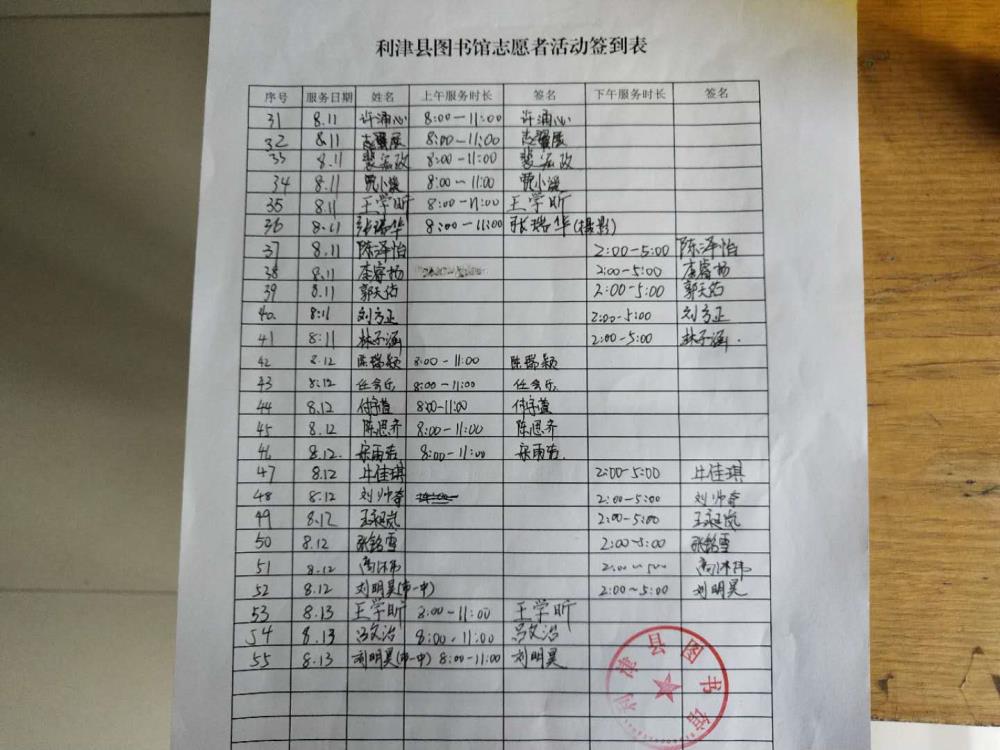 利津县图书馆志愿者活动签到表
序号 服务日期 姓名 上午服务时长 签名 下午服务时长 签名
31 8.11 许涌心 8:00-11:00 许涌心
32 8.11 8:00-11:00
33 8.11 裴泓政 8:00-11:00 裴泓政
34 8.11 贾小漫 8:00-11:00 贾小漫
35 8.11 王学昕 8:00-11:00 王学昕
36 8.11 张瑞华 8:00-11:00 张瑞华(摄影)
37 8.11 陈泽怡 2:00-5:00 陈泽怡
38 8.11 李睿扬 2:00-5:00 李睿扬
39 8.11 郭天佑 2:00-5:00 郭天佑
40 8.11 刘方正 2:00-5:00 刘方正
41 8.11 林子涵 2:00-5:00 林子涵.
42 8.12 陈瑞颖 8:00-11:00 陈瑞颖
43 8.12 任会乐 8:00-11:00 任会乐
44 8.12 付宇萱 8:00-11:00 付宇萱
45 8.12 陈思齐 8:00-11:00 陈思齐
46 8.12. 宋雨浩 8:00-11:00 宋雨浩.
47 8.12 佳琪 2:00-5:00 佳琪
48 8.12 刘帅奇 2:00-5:00 刘帅奇
49 8.12 2:00-5:00
50 8.12 张铭雪 2:00-5:00 张铭雪
51 8.12 高沐玮 2:00-5:00 高沐玮
52 8.12 刘明昊(市一中) 2:00-5:00 刘明昊
53 8.13 王学昕 8:00-11:00 王学昕
54 8.13 吕文治 8:00-11:00 吕文治
55 8.13 刘明昊(市一中) 8:00-11:00 刘明昊
利津县图书馆